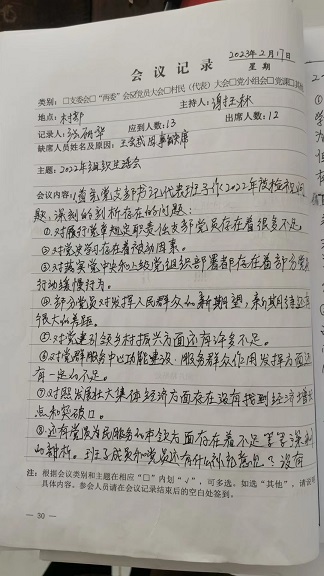 2023年2月17日
会议记录 星期
类别：□支委会□“两委”会☑党员大会□村民（代表）大会□党小组会□党课□其他
地点：村部 主持人：谢
记录人： 应到人数：13 出席人数：12
缺席人员姓名及原因：王 因事缺席
主题：2022年组织生活会
会议内容：党支部书记代表班子作2022年度检视问
题，深刻的剖析存在的问题：
①对履行党章规定职责但支部党员存在着很多不足。
②对党史学习存在着被动因素。
③对落实党中央和上级党组织部署都存在着部分党员
行动缓慢行为。
④部分党员对发挥人民群众的新期望，新期待还有
很大的差距。
⑤对党建引领乡村振兴方面还有许多不足。
⑥对党群服务中心功能建设、服务群众作用发挥方面还
有一定的不足。
⑦对照发展壮大集体经济方面存在没有找到经济增长
点和突破口。
⑧还有党员为民服务的本领方面存在着不足等等深刻
的剖析。班子成员和党员还有什么补充意见？没有
注：根据会议类别和主题在相应“□”内划“√”，可多选。如选“其他”，请
具体内容。参会人员请在会议记录结束后的空白处签到。
— 30 —